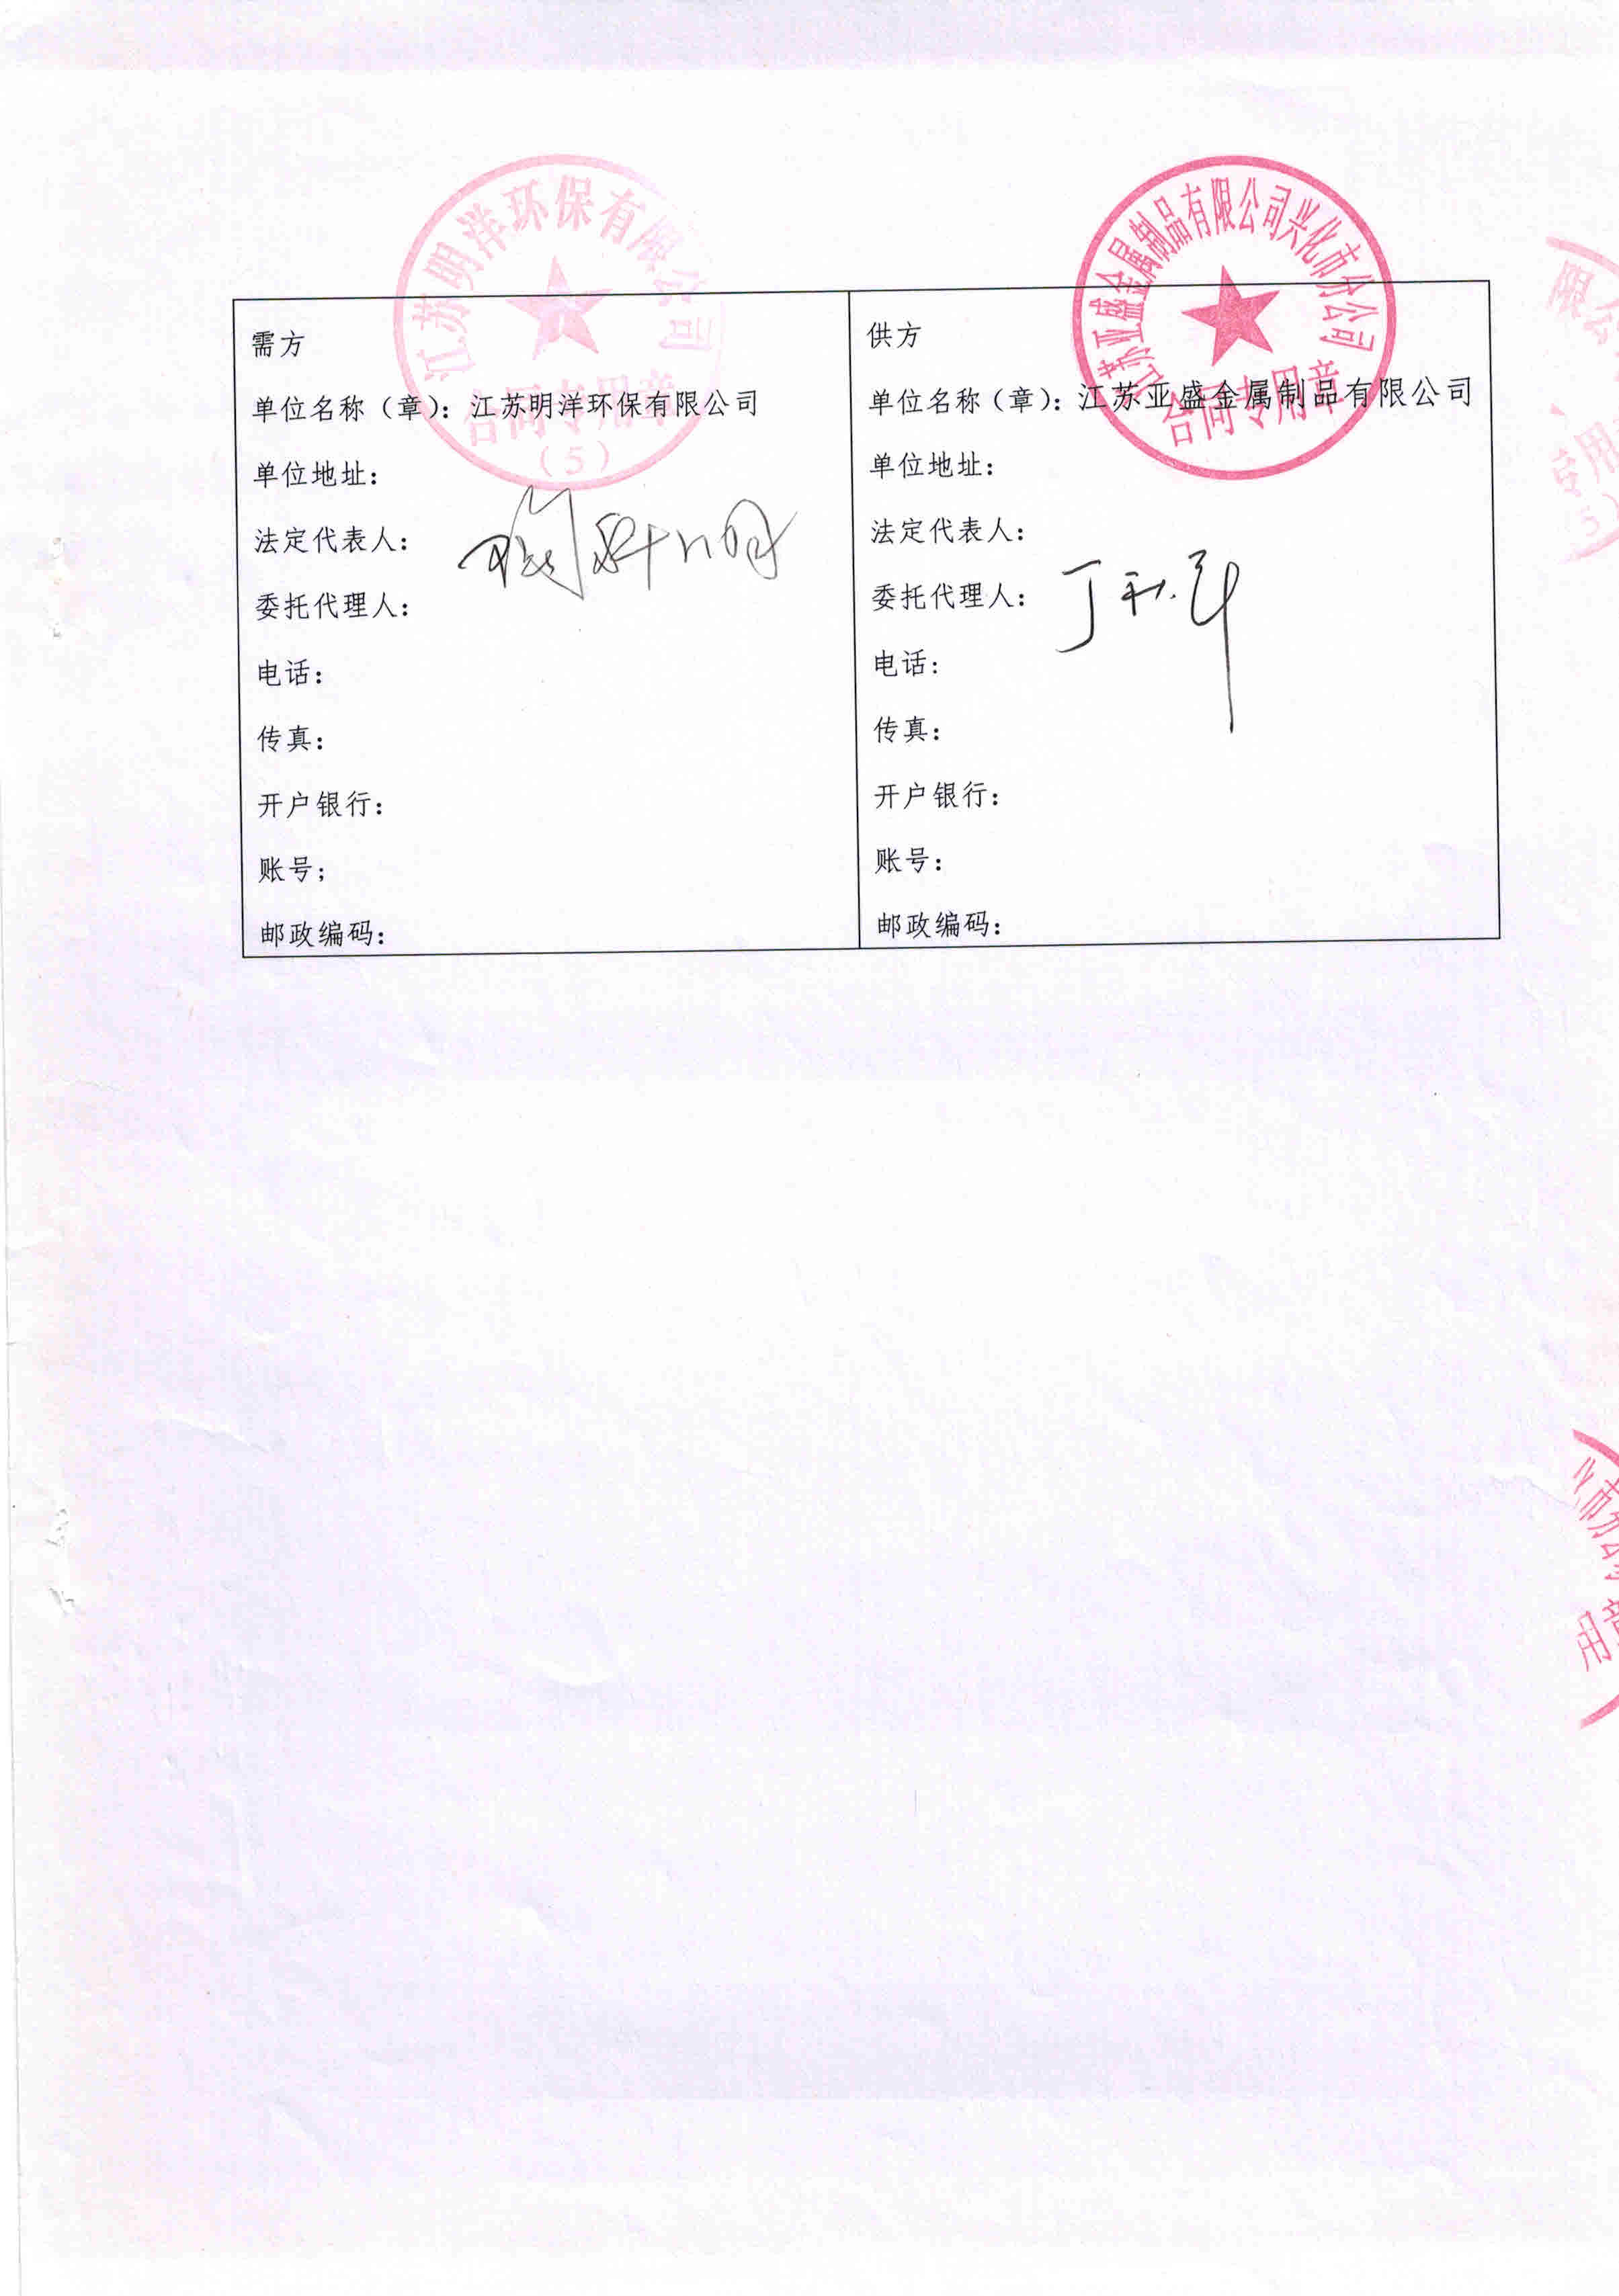 江苏明洋环保有限公司
合同专用章
（5）
江苏亚盛金属制品有限公司兴化市分公司
合同专用章
需方
单位名称（章）：江苏明洋环保有限公司
单位地址：
法定代表人：
委托代理人：
电话：
传真：
开户银行：
账号；
邮政编码：
供方
单位名称（章）：江苏亚盛金属制品有限公司
单位地址：
法定代表人：
委托代理人：
电话：
传真：
开户银行：
账号：
邮政编码：
限公
专用
5）
市分公
用章